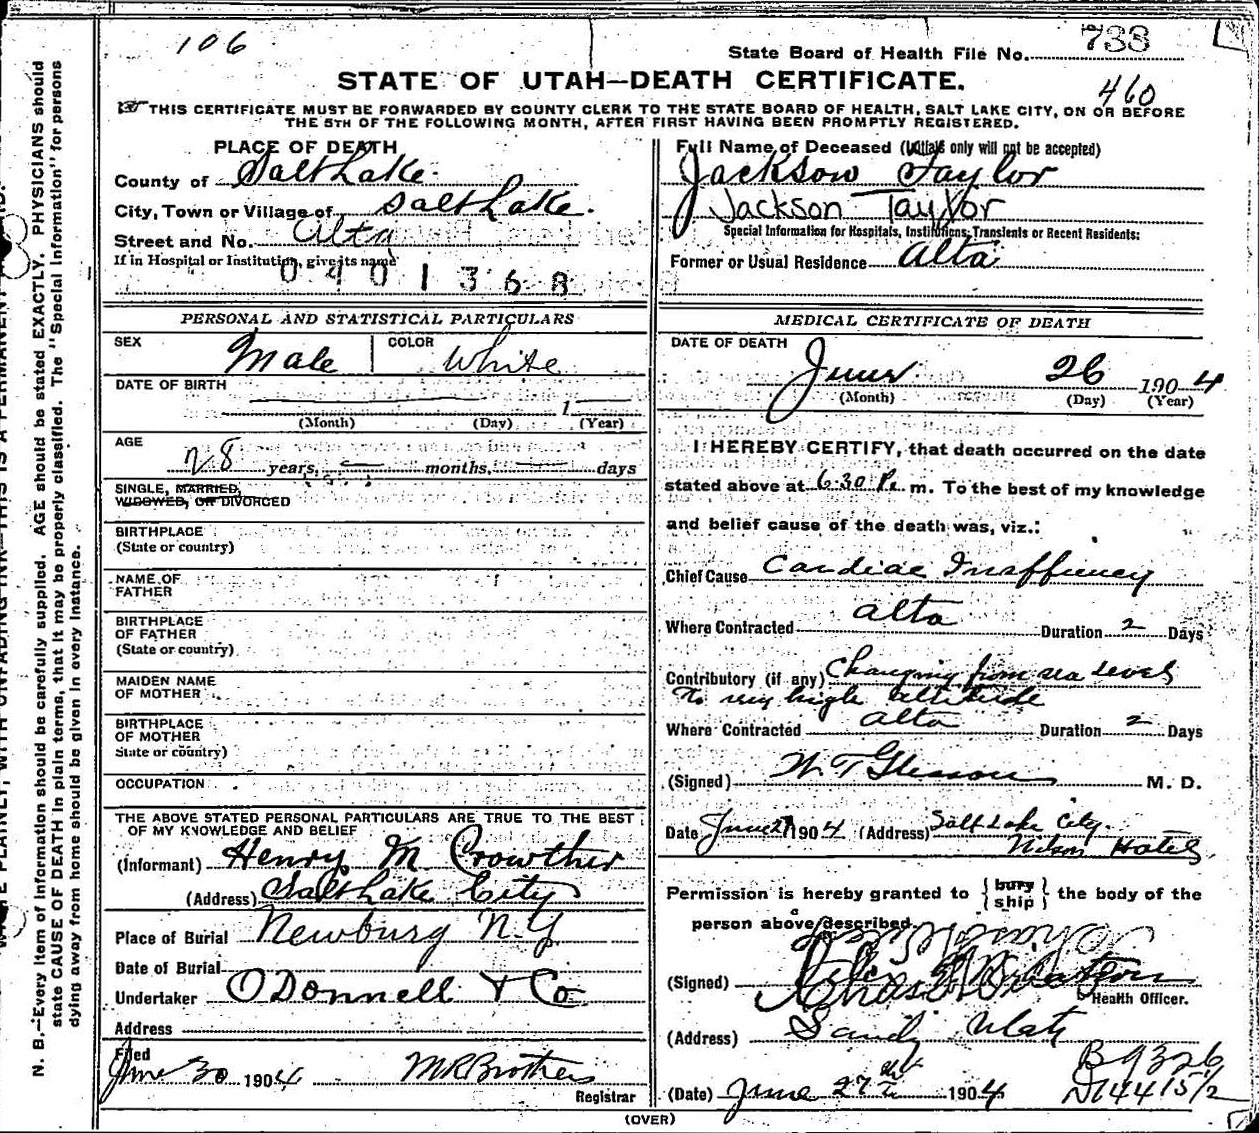 106
State Board of Health File No. 733
STATE OF UTAH—DEATH CERTIFICATE.
460
THIS CERTIFICATE MUST BE FORWARDED BY COUNTY CLERK TO THE STATE BOARD OF HEALTH, SALT LAKE CITY, ON OR BEFORE
THE 5TH OF THE FOLLOWING MONTH, AFTER FIRST HAVING BEEN PROMPTLY REGISTERED.
PLACE OF DEATH
County of Salt Lake.
City, Town or Village of Salt Lake.
Street and No. Alta
If in Hospital or Institution, give its name
0401368
Full Name of Deceased (Initials only will not be accepted)
Jackson Taylor
Jackson Taylor
Special Information for Hospitals, Institutions, Transients or Recent Residents:
Former or Usual Residence Alta
PERSONAL AND STATISTICAL PARTICULARS
SEX Male COLOR White
DATE OF BIRTH
1
(Month) (Day) (Year)
AGE
28 years, months, days
SINGLE, MARRIED,
WIDOWED, OR DIVORCED
BIRTHPLACE
(State or country)
NAME OF
FATHER
BIRTHPLACE
OF FATHER
(State or country)
MAIDEN NAME
OF MOTHER
BIRTHPLACE
OF MOTHER
State or country)
OCCUPATION
THE ABOVE STATED PERSONAL PARTICULARS ARE TRUE TO THE BEST
OF MY KNOWLEDGE AND BELIEF
(Informant) Henry M Crowther
(Address) Salt Lake City
Place of Burial Newburg N.Y
Date of Burial
Undertaker O Donnell & Co
Address
Filed
June 30 1904 M R Brothers
Registrar
MEDICAL CERTIFICATE OF DEATH
DATE OF DEATH
June 26 1904
(Month) (Day) (Year)
I HEREBY CERTIFY, that death occurred on the date
stated above at 6.30 P. m. To the best of my knowledge
and belief cause of the death was, viz.:
Chief Cause Cardiac Insufficiency
Where Contracted Alta Duration 2 Days
Contributory (if any) Changing from sea level
to very high altitude
Where Contracted Alta Duration 2 Days
(Signed) W T Glesson M. D.
Date June 27 1904 (Address) Salt Lake City.
Hotel
Permission is hereby granted to { bury ship } the body of the
person above described
(Signed)
Health Officer.
(Address) Sandy Utah
(Date) June 27th 1904
B9326
N14415 1/2
(OVER)
N. B.—Every item of information should be carefully supplied. AGE should be stated EXACTLY. PHYSICIANS should
state CAUSE OF DEATH in plain terms, that it may be properly classified. The "Special Information" for persons
dying away from home should be given in every instance.